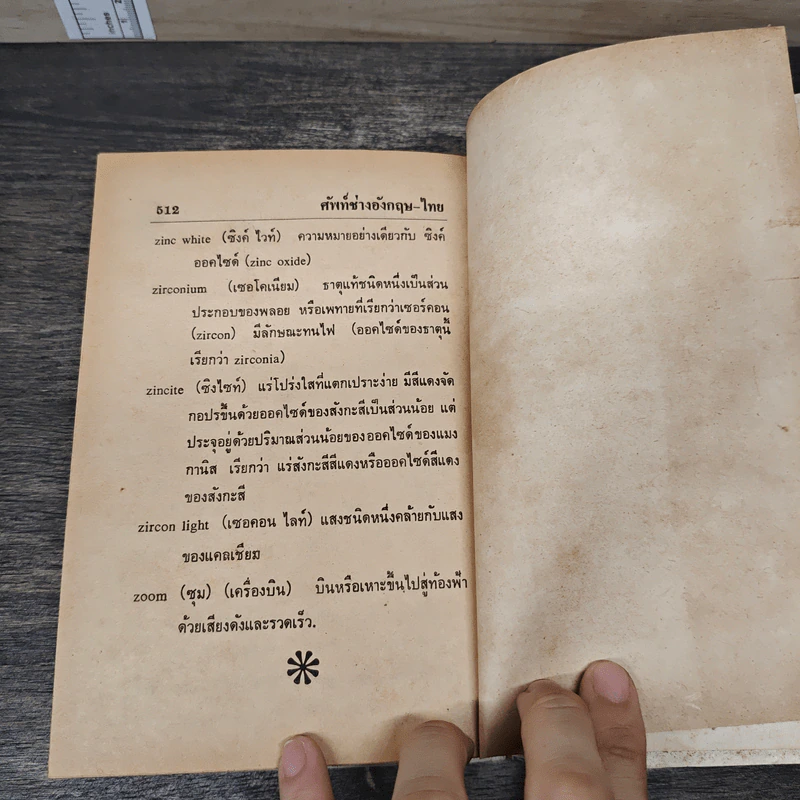 inches
512 ศัพท์ช่างอังกฤษ–ไทย
zinc white (ซิงค์ ไวท์) ความหมายอย่างเดียวกับ ซิงค์
ออคไซด์ (zinc oxide)
zirconium (เซอโคเนียม) ธาตุแท้ชนิดหนึ่งเป็นส่วน
ประกอบของพลอย หรือเพทายที่เรียกว่าเซอร์คอน
(zircon) มีลักษณะทนไฟ (ออคไซด์ของธาตุนี้
เรียกว่า zirconia)
zincite (ซิงไซท์) แร่โปร่งใสที่แตกเปราะง่าย มีสีแดงจัด
กอปรขึ้นด้วยออคไซด์ของสังกะสีเป็นส่วนน้อย แต่
ประจุอยู่ด้วยปริมาณส่วนน้อยของออคไซด์ของแมง
กานิส เรียกว่า แร่สังกะสีสีแดงหรือออคไซด์สีแดง
ของสังกะสี
zircon light (เซอคอน ไลท์) แสงชนิดหนึ่งคล้ายกับแสง
ของแคลเซียม
zoom (ซุม) (เครื่องบิน) บินหรือเหาะขึ้นไปสู่ท้องฟ้า
ด้วยเสียงดังและรวดเร็ว.